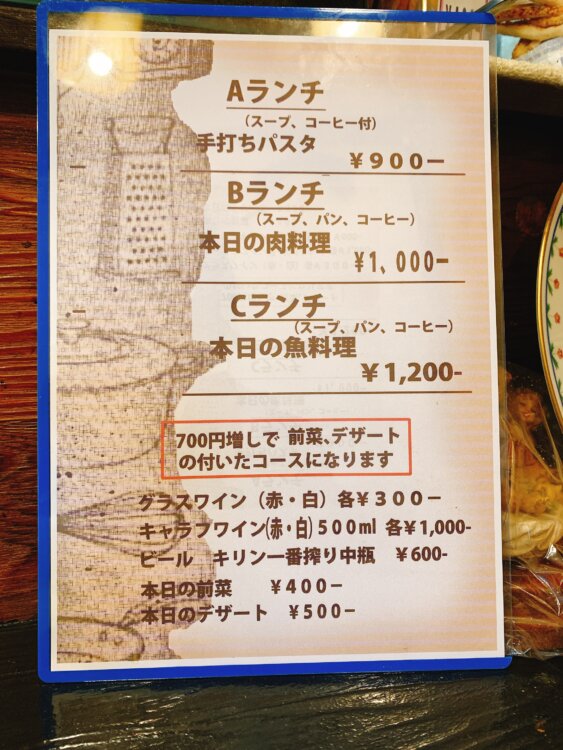 Aランチ
(スープ、コーヒー付)
手打ちパスタ
¥900ー
Bランチ
(スープ、パン、コーヒー)
本日の肉料理
¥1,000ー
Cランチ
(スープ、パン、コーヒー)
本日の魚料理
¥1,200-
700円増しで 前菜、デザート
の付いたコースになります
グラスワイン(赤・白)各¥300ー
キャラフワイン(赤・白)500ml 各¥1,000-
ビール キリン一番搾り中瓶 ¥600-
本日の前菜 ¥400ー
本日のデザート ¥500ー